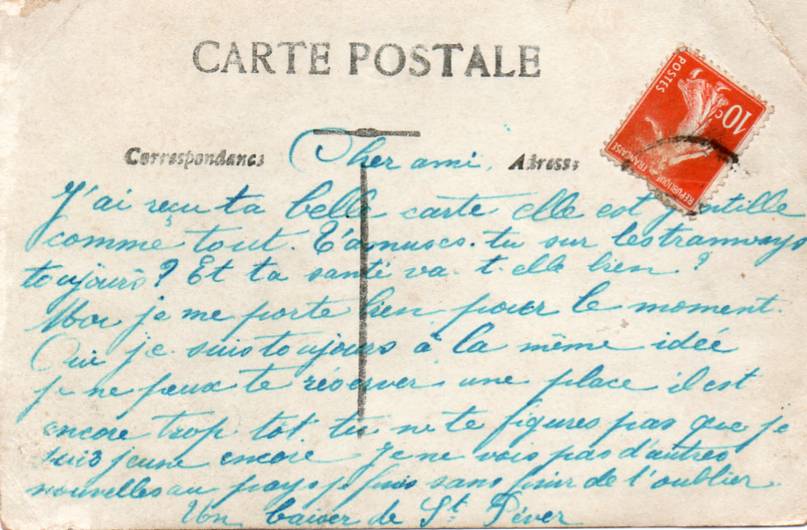 CARTE POSTALE
Correspondance
Adresse
POSTES
10c
REPUBLIQUE FRANÇAISE
Cher ami,
J'ai reçu ta belle carte elle est gentille
comme tout. T'amuses-tu sur les tramways
toujours? Et ta santé va-t-elle bien?
Moi je me porte bien pour le moment.
Oui je suis toujours à la même idée
je ne peux te réserver une place il est
encore trop tôt tu ne te figures pas que je
suis jeune encore je ne vois pas d'autres
nouvelles au pays je finis sans finir de l'oublier.
Un baiser de St Péver